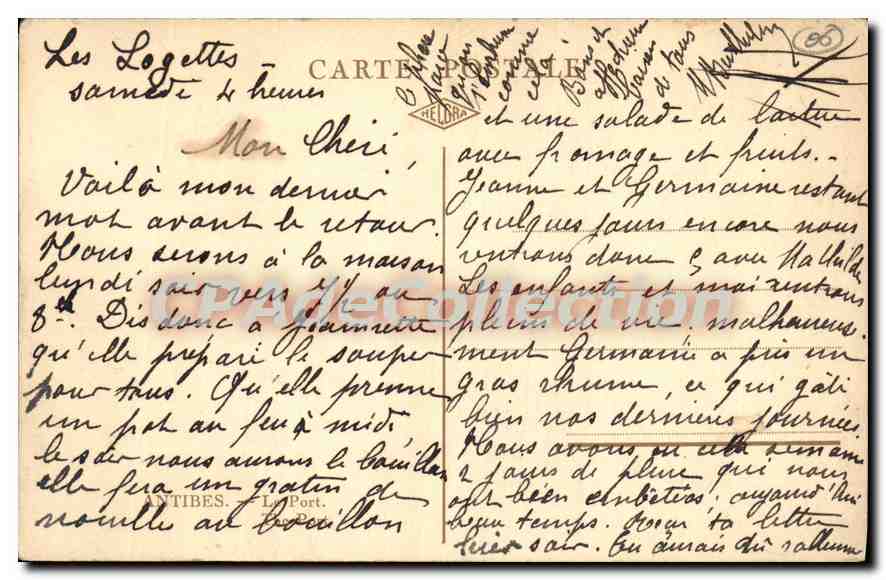 Les Logettes
samedi 4 heures
CARTE POSTALE
HELGRA
06
Mon Chéri,
Voilà mon dernier
mot avant le retour.
Nous serons à la maison
lundi soir vers 7 ou
8 h. Dis donc à Jeannette
qu'elle prépare le souper
pour tous. Qu'elle prenne
un pot au feu à midi
le soir nous aurons le bouillon
elle fera un gratin de
nouille au bouillon
ANTIBES. — Le Port.
et une salade de laitue
avec fromage et fruits. -
Jeanne et Germaine restant
quelques jours encore nous
rentrons donc avec Mathilde
Les enfants et moi rentrons
pleins de vie. malheureuse-
ment Germaine a pris un
gros rhume, ce qui gâti
bien nos dernières journées
Nous avons eu cette semaine
2 jours de pluie qui nous
ont bien embêtés; aujourd'hui
beau temps. Reçu ta lettre
hier soir. Tu aurais dû
comme
cela.
Bons et
de tous
CPAdeCollection